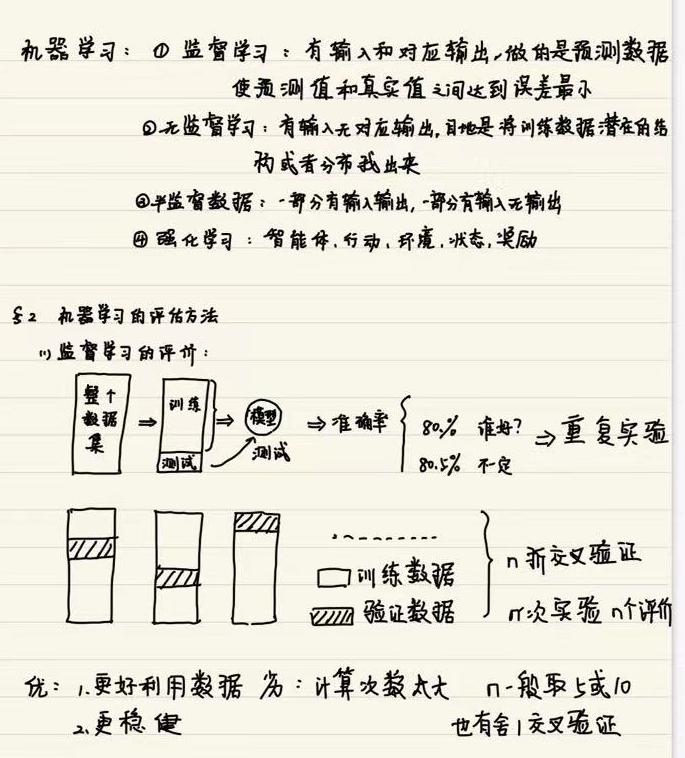 机器学习：① 监督学习：有输入和对应输出，做的是预测数据
使预测值和真实值之间达到误差最小
②无监督学习：有输入无对应输出，目地是将训练数据潜在的结
构或者分布找出来
③半监督数据：一部分有输入输出，一部分有输入无输出
④ 强化学习：智能体、行动、环境、状态、奖励
§2 机器学习的评估方法
(1)监督学习的评价：
整个
数据
集
⇒
训练
测试
⇒
模型
测试
⇒准确率
80% 谁好？
80.5% 不定
⇒重复实验
训练数据
验证数据
n折交叉验证
n次实验 n个评价
优：1.更好利用数据 劣：计算次数太大 n一般取5或10
2.更稳健 也有舍1交叉验证